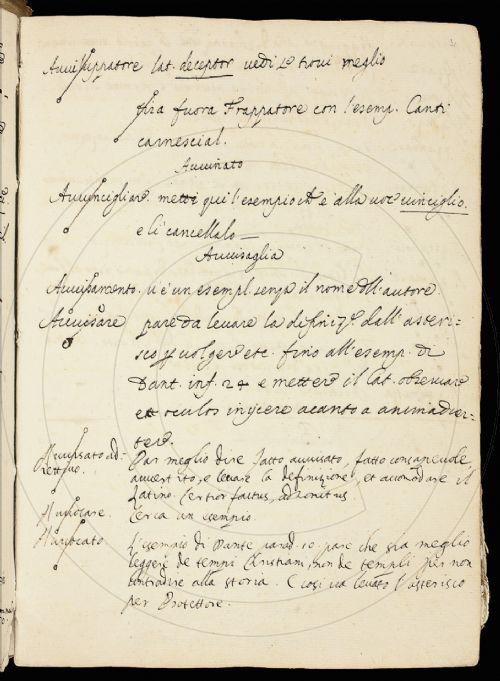 Avviluppatore lat. deceptor vedi se trovi meglio
tira fuora Frappatore con l'esemp. Canti
carnescial.
Avvinato
Avvincigliare. mette qui l'esempio ch'è alla voc vinciglio.
e lì cancellalo
Avvisaglia
Avvisamento. v'è un esempl. senza il nome dll'autore.
Avvisare pare da levare la definiz.e dall'asteri=
sco volgere etc. fino all'esemp. di
Dant. inf. 24 e mettere il lat. observare
et oculos injicere acanto a animadver=
tere.
Avvisato ad=
iettivo.
Par meglio dire fatto avvisato, fatto consapevole,
avvertito, e levare la definizione, et accomodare il
latino. Certior factus, admonitus.
Cerca un esempio.
Avvocato
L'esempio di Dante parad. 10. pare che stia meglio
leggere de tempi Cristiani, non de templi per non
contradire alla storia. E così va levato l'asterisco
per Protettore.